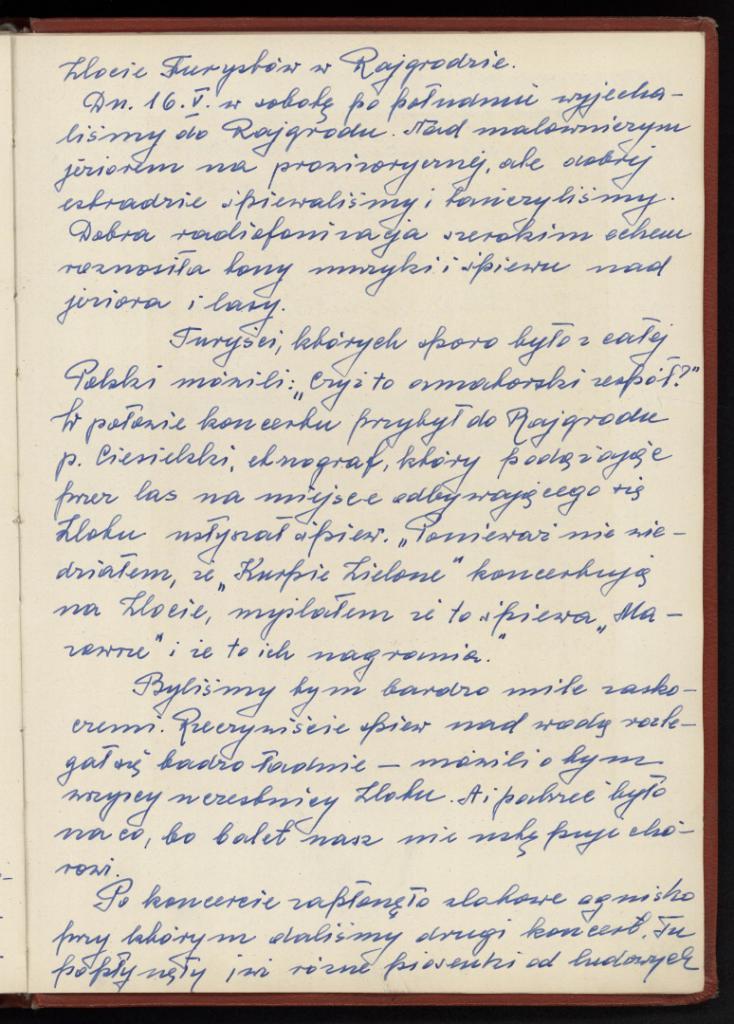 Zlocie Turystów w Rajgrodzie.
Dn. 16.V. w sobotę po południu wyjecha-
liśmy do Rajgrodu. Nad malowniczym
jeziorem na prowizorycznej, ale dobrej
estradzie śpiewaliśmy i tańczyliśmy.
Dobra radiofonizacja szerokim echem
roznosiła tony muzyki i śpiewu nad
jeziora i lasy.
Turyści, których sporo było z całej
Polski mówili: „Czyż to amatorski zespół?"
W połowie koncertu przybył do Rajgrodu
p. Ciesielski, etnograf, który podążając
przez las na miejsce odbywającego się
Zlotu usłyszał śpiew. „Ponieważ nie wie-
działem, że „Kurpie Zielone" koncertują
na Zlocie, myślałem że to śpiewa „Ma-
zowsze" i że to ich nagrania."
Byliśmy tym bardzo mile zasko-
czeni. Rzeczywiście śpiew nad wodą rozle-
gał się badzo ładnie – mówili o tym
wszyscy uczestnicy Zlotu. A i patrzeć było
na co, bo balet nasz nie ustępuje chó-
rowi.
Po koncercie zapłonęło zlotowe ognisko
przy którym daliśmy drugi koncert. Tu
popłynęły już różne piosenki od ludowych